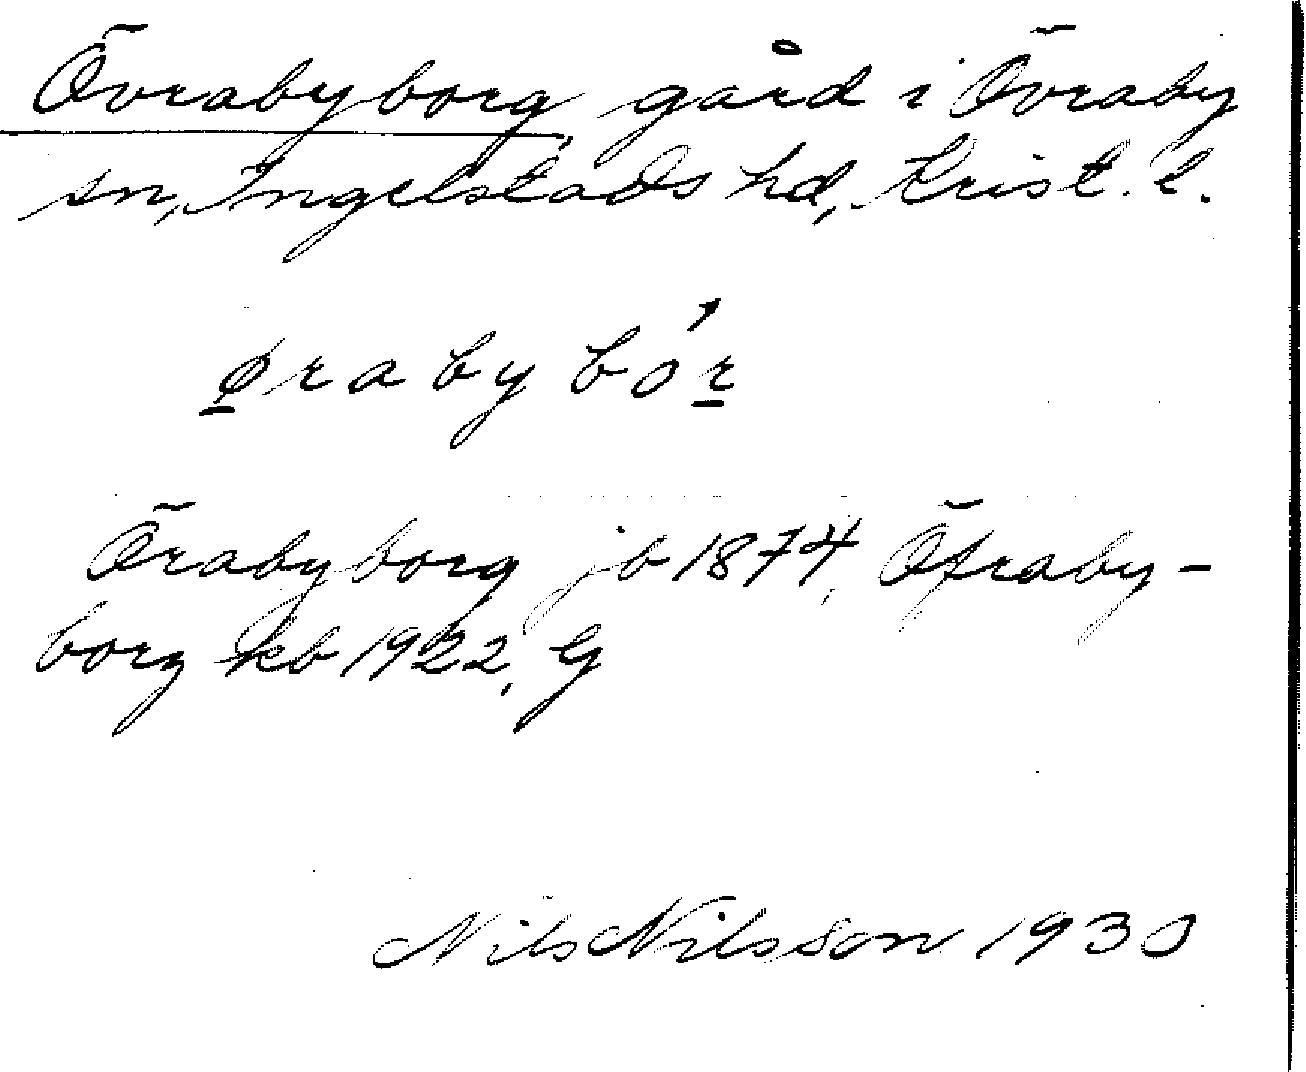 Övrabyborg, gård i Övraby
sn, Ingelstads hd, Krist. l.
ø̱rabybóṟ
Örabyborg jb 1874, Öfraby-
borg kb 1922, G
Nils Nilsson 1930